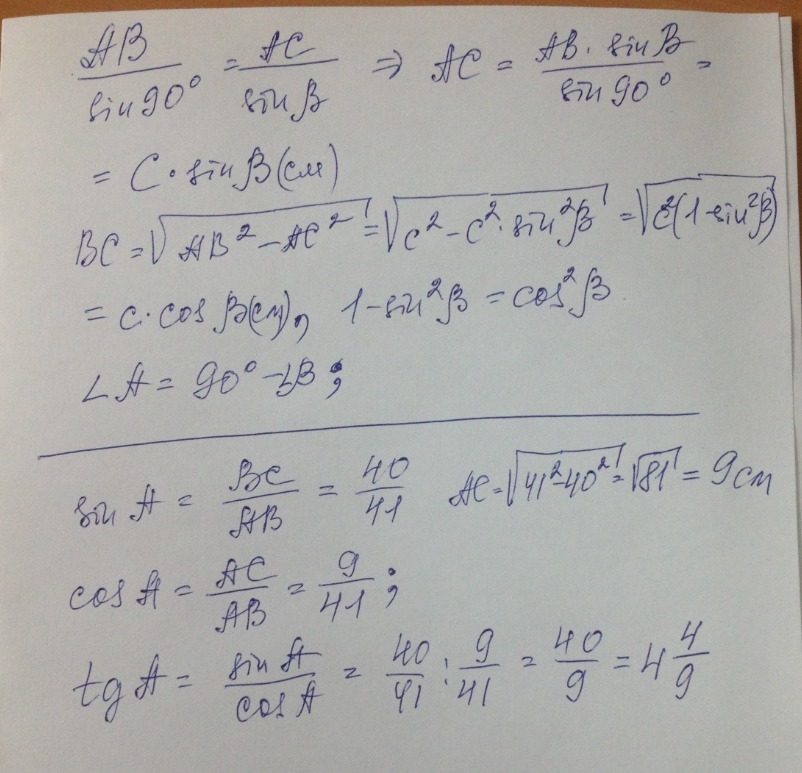 AB/sin90° = AC/sinβ ⇒ AC = AB·sinβ/sin90° =
= C·sinβ(см)
BC = √(AB² − AC²) = √(c² − c²·sin²β) = √(c²(1−sin²β))
= c·cosβ(см), 1−sin²β = cos²β
∠A = 90° − ∠B;
sin A = BC/AB = 40/41 AC = √(41²−40²) = √81 = 9см
cos A = AC/AB = 9/41;
tg A = sin A/cos A = 40/41 : 9/41 = 40/9 = 4 4/9